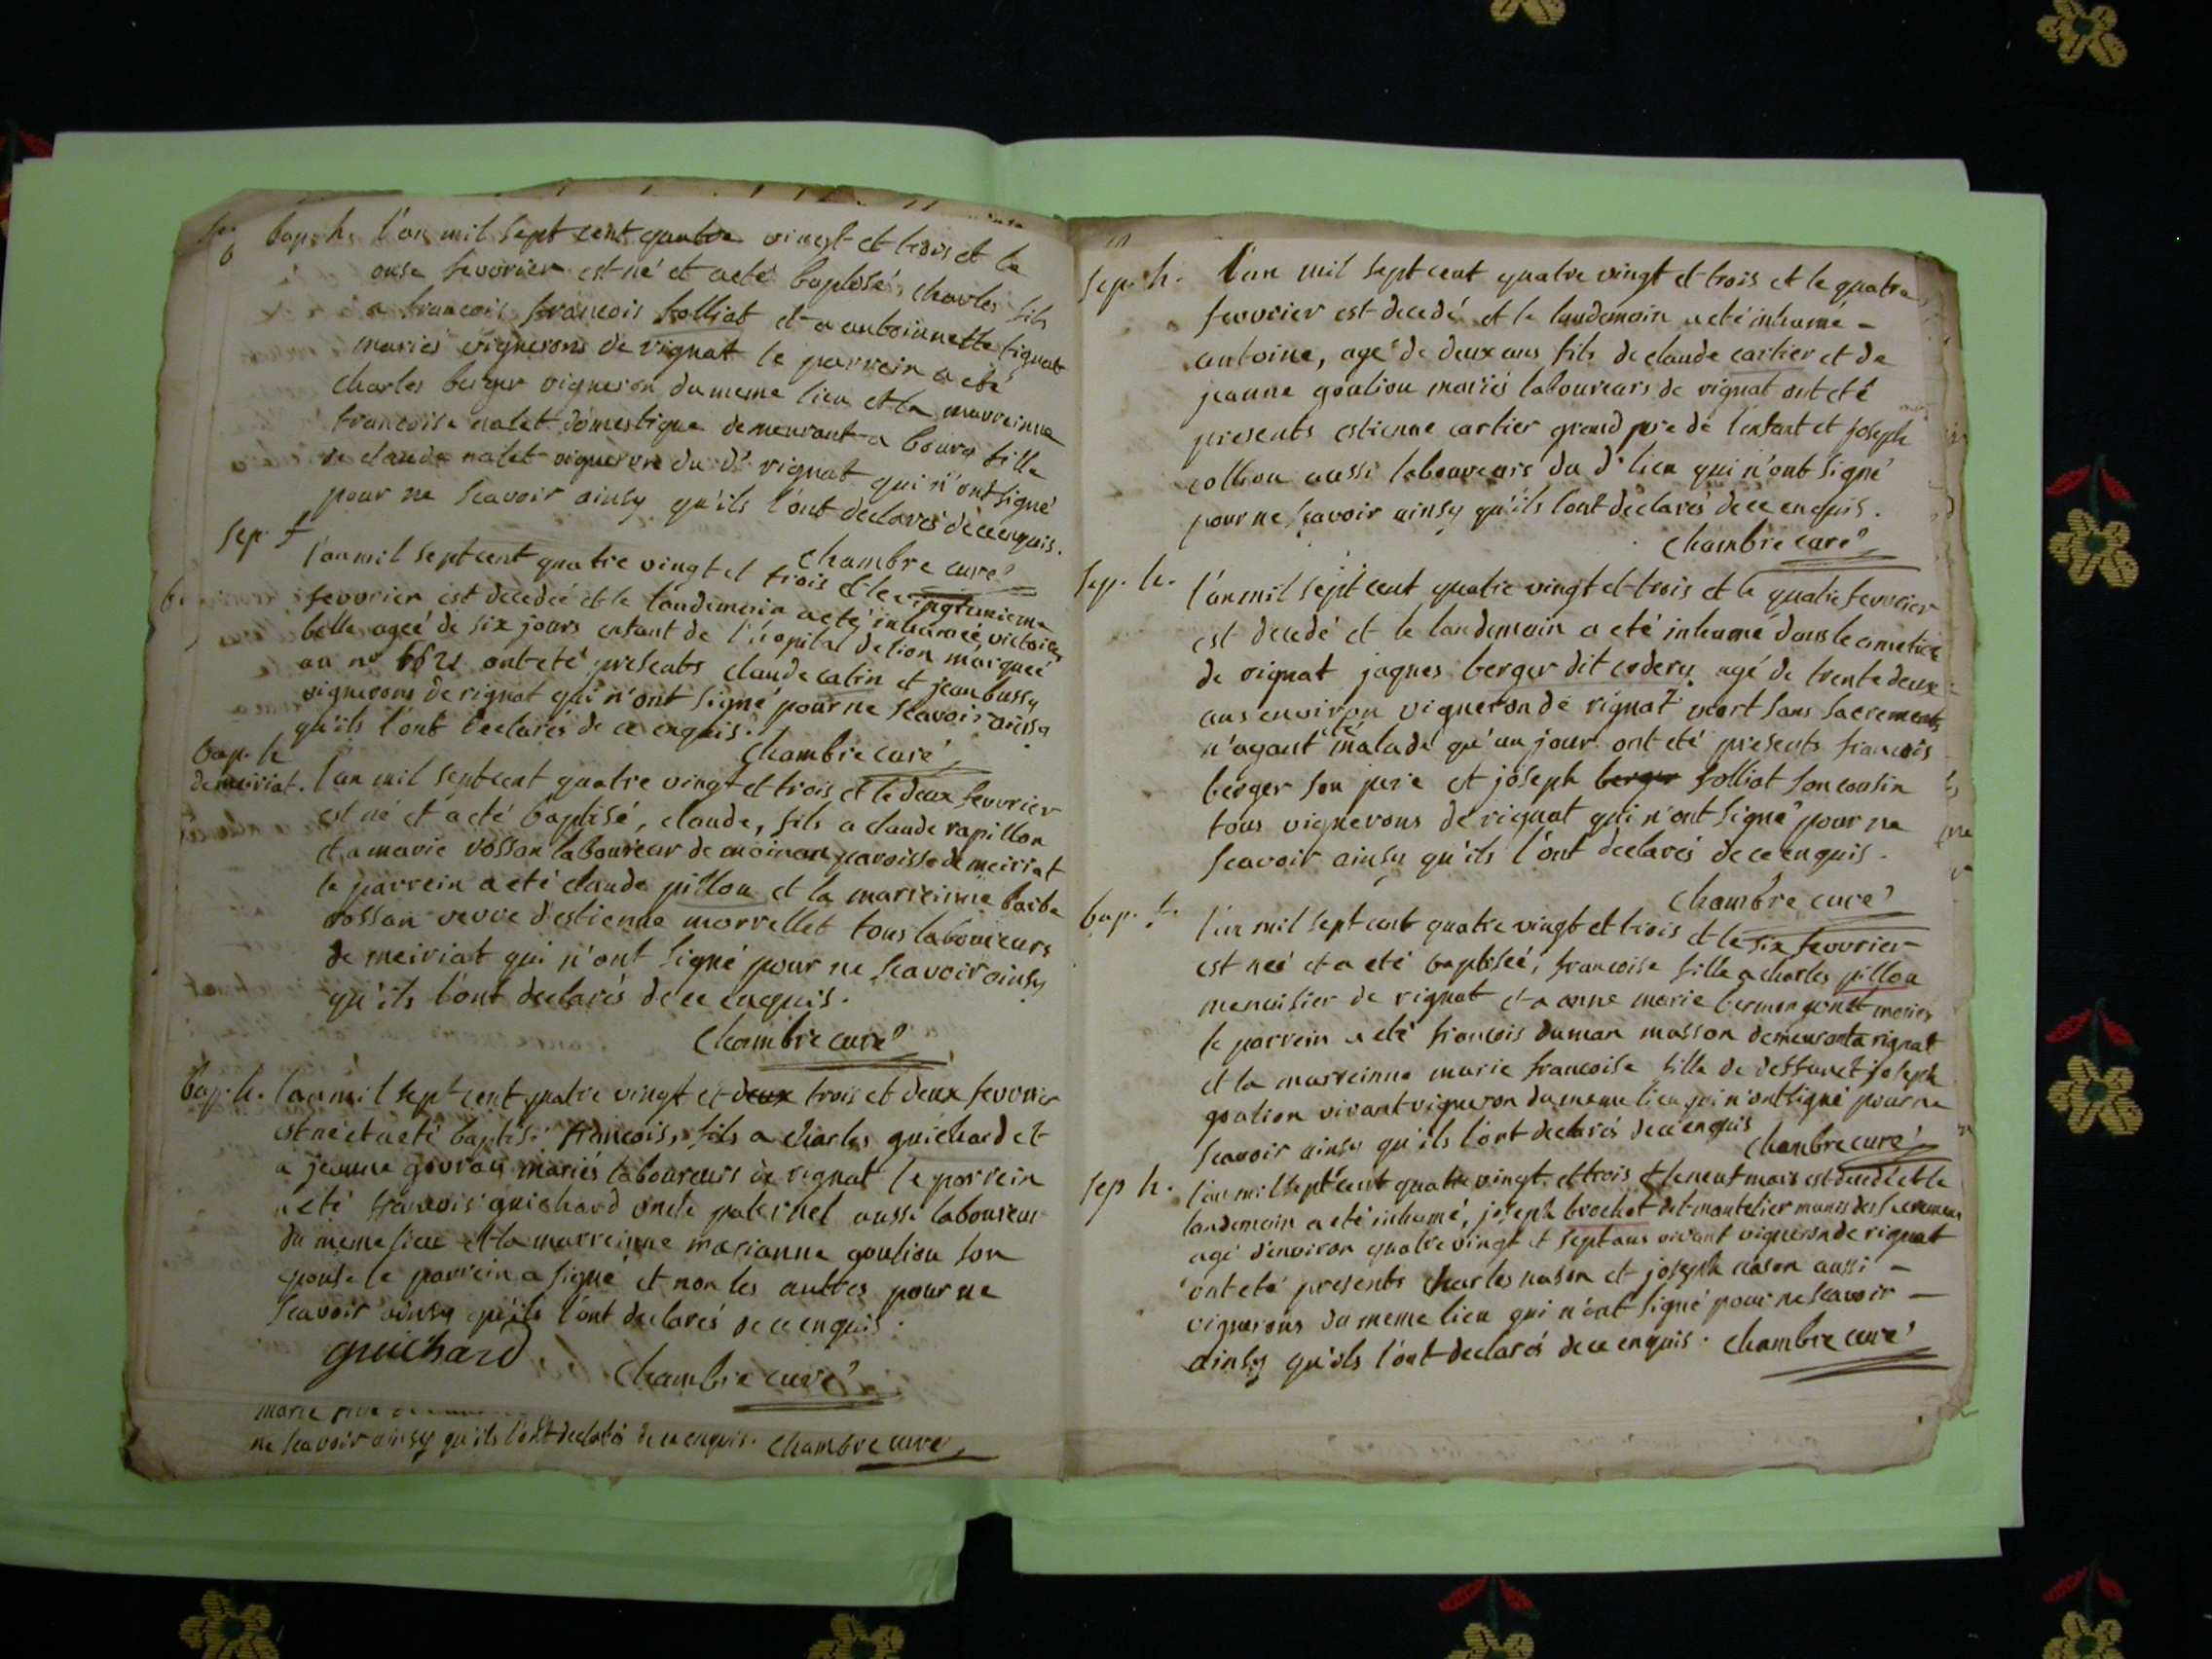 bap. h. l'an mil sept cent quatre vingt et trois et le
onse fevvrier est né et a eté baptisé, charles fils
a francois francois folliat et a antoinette tignat
mariés vignerons de rignat le parrein a eté
charles berger vigneron du meme lieu et la marreinne
francoise nalet domestique demeurant a bourg fille
de claude nalet vigneron du dt rignat qui n'ont signé
pour ne scavoir ainsy qu'ils l'ont declarés de ce enquis.
chambre curé
sep. f
l'an mil sept cent quatre vingt et trois et le
fevvrier est decedée et le landemain a eté inhumée victoire
belle ageé de six jours enfant de l'hopital de lion marqueé
au no ont eté presents claude catin et jean bussy
vignerons de rignat qui n'ont signé pour ne scavoir ainsy
qu'ils l'ont declarés de ce enquis.
chambre curé
bap. h
de meiriat. l'an mil sept cent quatre vingt et trois et le deux fevvrier
est né et a eté baptisé, claude, fils a claude rapillon
et a marie rossan laboureur de moinans paroisse de meiriat
le parrein a eté claude pillon et la marreinne barbe
rossan vevve d'estienne morrellet tous laboureurs
de meiriat qui n'ont signé pour ne scavoir ainsy
qu'ils l'ont declarés de ce enquis.
chambre curé
bap. h. l'an mil sept cent quatre vingt et deux trois et deux fevvrier
est né et a eté baptisé francois, fils a charles guichard et
a jeanne govron mariés laboureurs de rignat le parrein
a eté francois guichard oncle paternel aussi laboureur
du meme lieu et la marreinne marianne goulion son
epouse le parrein a signé et non les autres pour ne
scavoir ainsy qu'ils l'ont declarés de ce enquis.
guichard
chambre curé
marie
ne scavoir ainsy qu'ils l'ont declarés de ce enquis. chambre curé
sep. h. l'an mil sept cent quatre vingt et trois et le quatre
fevvrier est decedé et le landemain a eté inhumé
antoine, agé de deux ans fils de claude cartier et de
jeanne goulion mariés laboureurs de rignat ont eté
presents estienne cartier grand pere de l'enfant et joseph
collion aussi laboureurs du dt lieu qui n'ont signé
pour ne scavoir ainsy qu'ils l'ont declarés de ce enquis.
chambre curé
sep. h. l'an mil sept cent quatre vingt et trois et le quatre fevvrier
est decedé et le landemain a eté inhumé dans le cimetiere
de rignat jaques berger dit agé de trente deux
ans environ vigneron de rignat mort sans sacrements
n'ayant eté malade qu'un jour. ont eté presents francois
berger son pere et joseph berger folliat son cousin
tous vignerons de rignat qui n'ont signé pour ne
scavoir ainsy qu'ils l'ont declarés de ce enquis.
chambre curé
bap. f. l'an mil sept cent quatre vingt et trois et le six fevvrier
est neé et a eté baptiseé, francoise fille a charles pillon
menuisier de rignat et a anne marie mariés
le parrein a eté francois duman masson demeurant a rignat
et la marreinne marie francoise fille de deffunct joseph
goalion vivant vigneron du meme lieu qui n'ont signé pour ne
scavoir ainsy qu'ils l'ont declarés de ce enquis
chambre curé
sep h. l'an mil sept cent quatre vingt et trois et le neuf mars est decedé et le
landemain a eté inhumé, joseph brochet dit mantelier munis des sacremens
agé d'environ quatre vingt et sept ans vivant vigneron de rignat
ont eté presents charles nason et joseph nason aussi
vignerons du meme lieu qui n'ont signé pour ne scavoir
ainsy qu'ils l'ont declarés de ce enquis. chambre curé